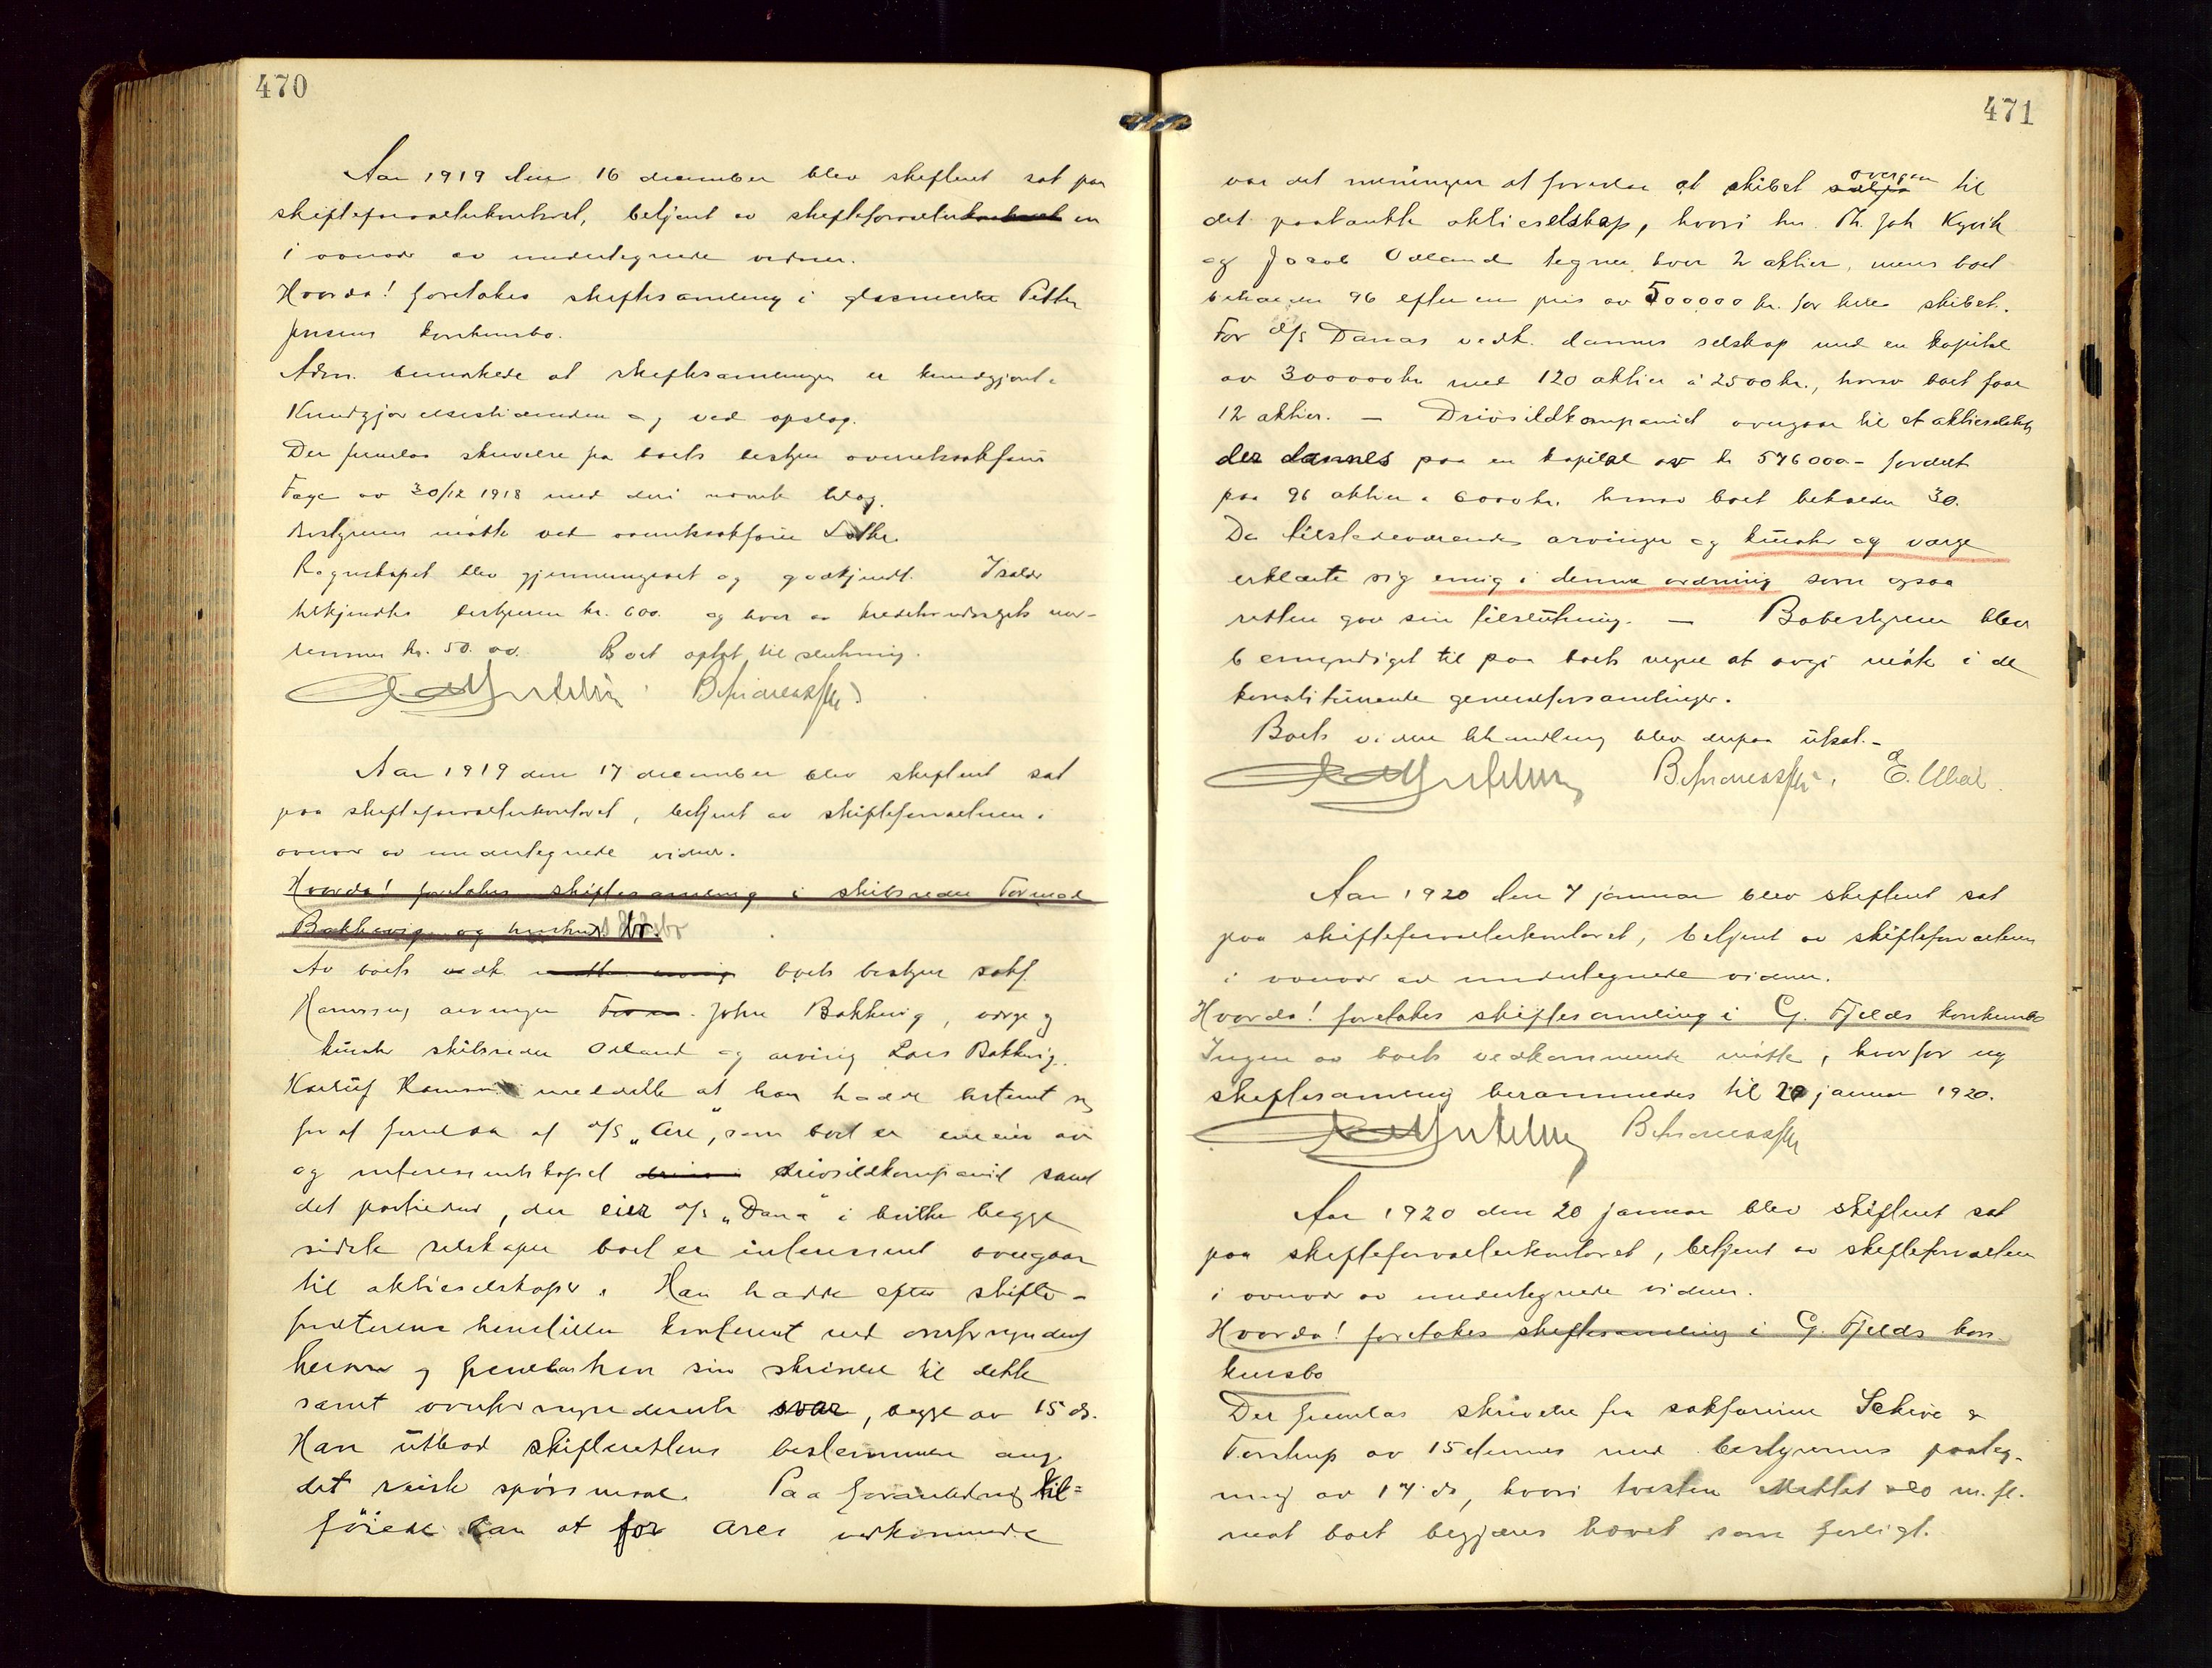 470
Aar 1919 den 16 december blev skifteret sat paa
skifteforvalterkontoret, betjent av skifteforvalteren
i overvær av undertegnede vidner.
Hvorda! foretokes skiftesamling i glasmester Petter
Jensens konkursbo.
Adm. bemerkede at skiftesamlingen er kundgjort i
Kundgjørelsestidenden og ved opslag.
Der fremlaa skrivelse fra boets bestyrer overretssakfører
av 30/12 1918 med deri nævnte bilag.
Bestyreren møtte ved overretssakfører
Regnskapet blev gjennemgaaet og godkjendt. I salær
tilkjendtes bestyreren kr. 600. og hver av kreditorutvalgets med-
lemmer kr. 50.00. Boet optat til slutning.
Aar 1919 den 17 december blev skifteret sat
paa skifteforvalterkontoret, betjent av skifteforvalteren i
overvær av undertegnede vidner.
Hvorda! foretokes skiftesamling i skibsreder Tormod
Bakkevig og hustrus bo
Av boets vedk. boets bestyrer sakf.
Hamsun, arvingen John Bakkevig, verge og
kurator skibsreder Odland og arving Lars Bakkevig.
Hamsun meddelte at han hadde bestemt sig
for at foreslaa at d/s "Are", som boet er eneeier av
og interessentskapet drivsildkompaniet samt
det partrederi, der eier d/s "Dana" i hvilke begge
sidste selskaper boet er interessent overgaar
til aktieselskaper. Han hadde efter skifte-
forvalterens henstillen konferert med overformynderiet
herom og fremla han sin skrivelse til dette
samt overformynderiets svar, begge av 15 ds.
Han utbad skifterettens bestemmelse ang.
det reiste spørsmaal. Paa foranledning til=
føiede han at for Ares vedkommende
471
var det meningen at foreslaa at skibet overgaar til
det paatænkte aktieselskap, hvori hr. Th. Joh Kyvik
og Jacob Odland tegner hver 2 aktier, mens boet
beholder 96 efter en pris av 500000 kr. for hele skibet.
For d/s Danas vedk. dannes selskap med en kapital
av 300000 kr med 120 aktier á 2500 kr., hvorav boet faar
12 aktier. — Drivsildkompaniet overgaar til et aktieselskap
der dannes paa en kapital av kr 576000- fordelt
paa 96 aktier á 6000 kr. hvorav boet beholder 30.
De tilstedeværende arvinger og kurator og værge
erklærte sig enig i denne ordning som ogsaa
retten gav sin tilslutning. — Bobestyreren blev
bemyndiget til paa boets vegne at avgi møte i de
konstituerende generalforsamlinger.
Boets videre behandling blev derpaa utsat.-
Aar 1920 den 7 januar blev skifteret sat
paa skifteforvalterkontoret, betjent av skifteforvalteren
i overvær av undertegnede vidner.
Hvorda! foretokes skiftesamling i G. Fjelds konkursbo
Ingen av boets vedkommende møtte, hvorfor ny
skiftesamling berammedes til 20 januar 1920.
Aar 1920 den 20 januar blev skifteret sat
paa skifteforvalterkontoret, betjent av skifteforvalteren
i overvær av undertegnede vidner.
Hvorda! foretokes skiftesamling i G. Fjelds kon-
kursbo
Der fremlas skrivelse fra sakførerne Schive &
Torstrup av 15 dennes med bestyrerens paateg-
ning av 17 ds, hvori tvisten m. fl.
mot boet begjæres hævet som forligt.